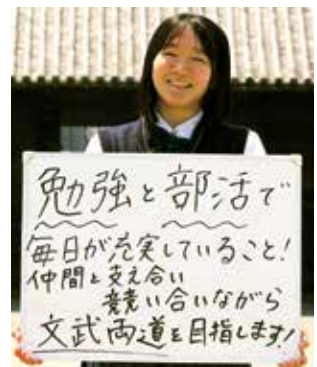 勉強と部活で
毎日が充実していること!
仲間と支え合い
競い合いながら
文武両道を目指します!